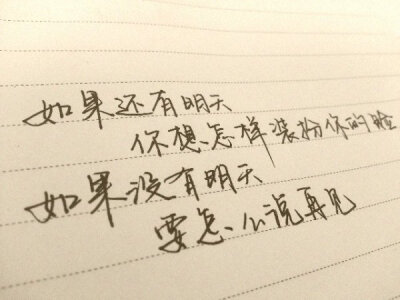 如果还有明天
你想怎样装扮你的脸
如果没有明天
要怎么说再见